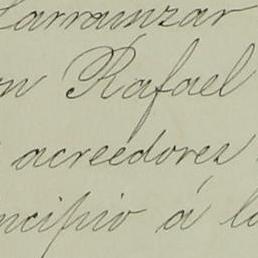 Larrainzar
n Rafael
acreedores
ncipio á lo